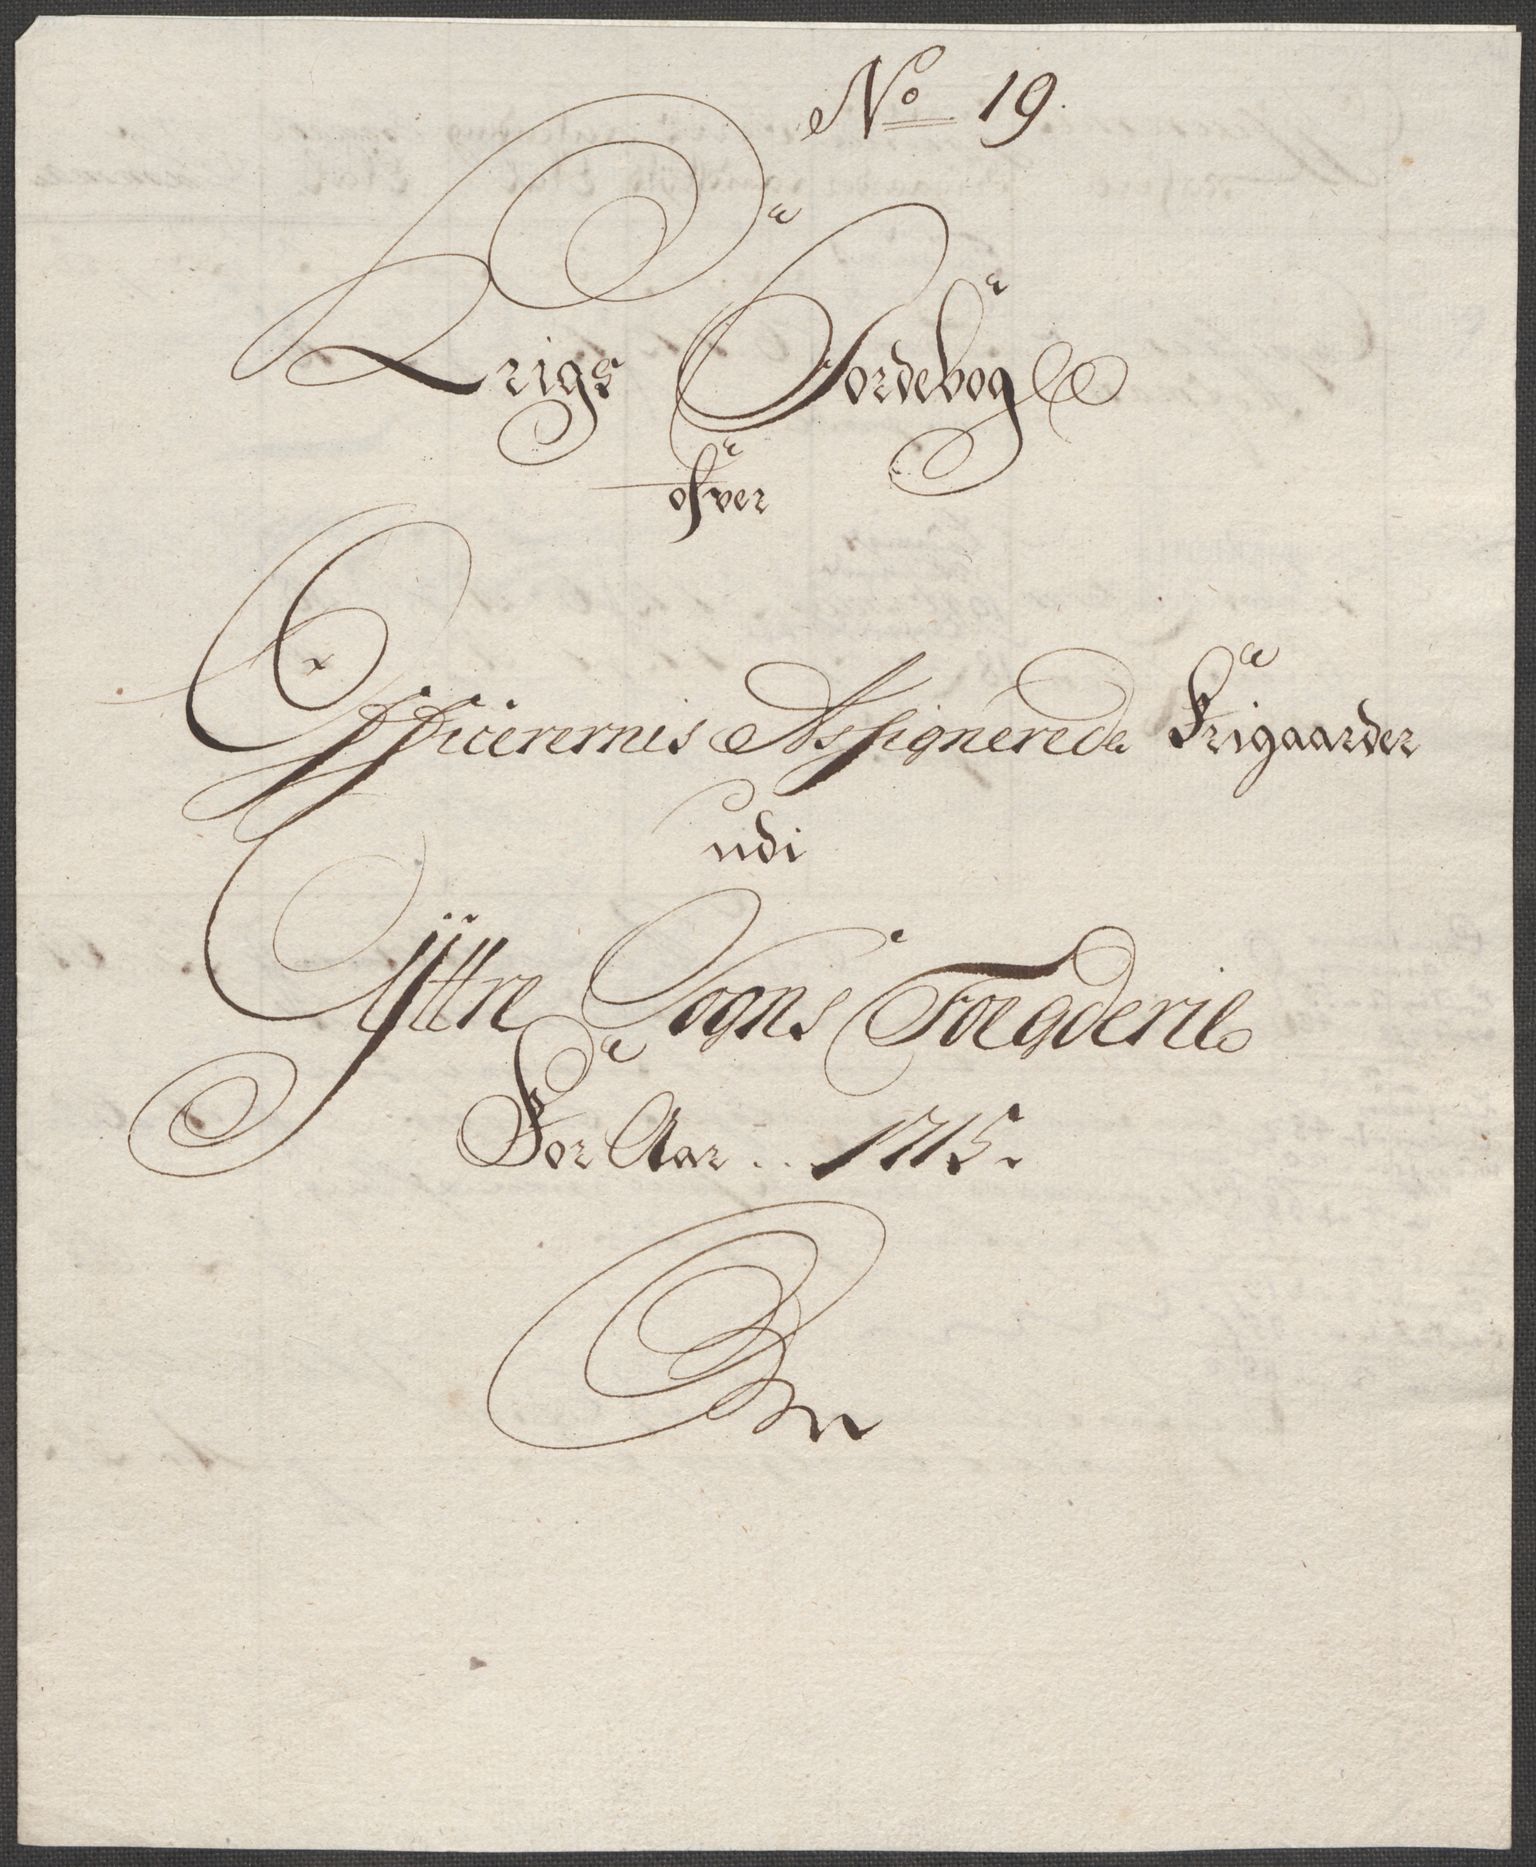 No 19.
Krigs Jordebog
ofver
Officerernis Assignerede Frigaarder
udi
Ÿttre Sogns Foegderie
For Aar .. 1715.